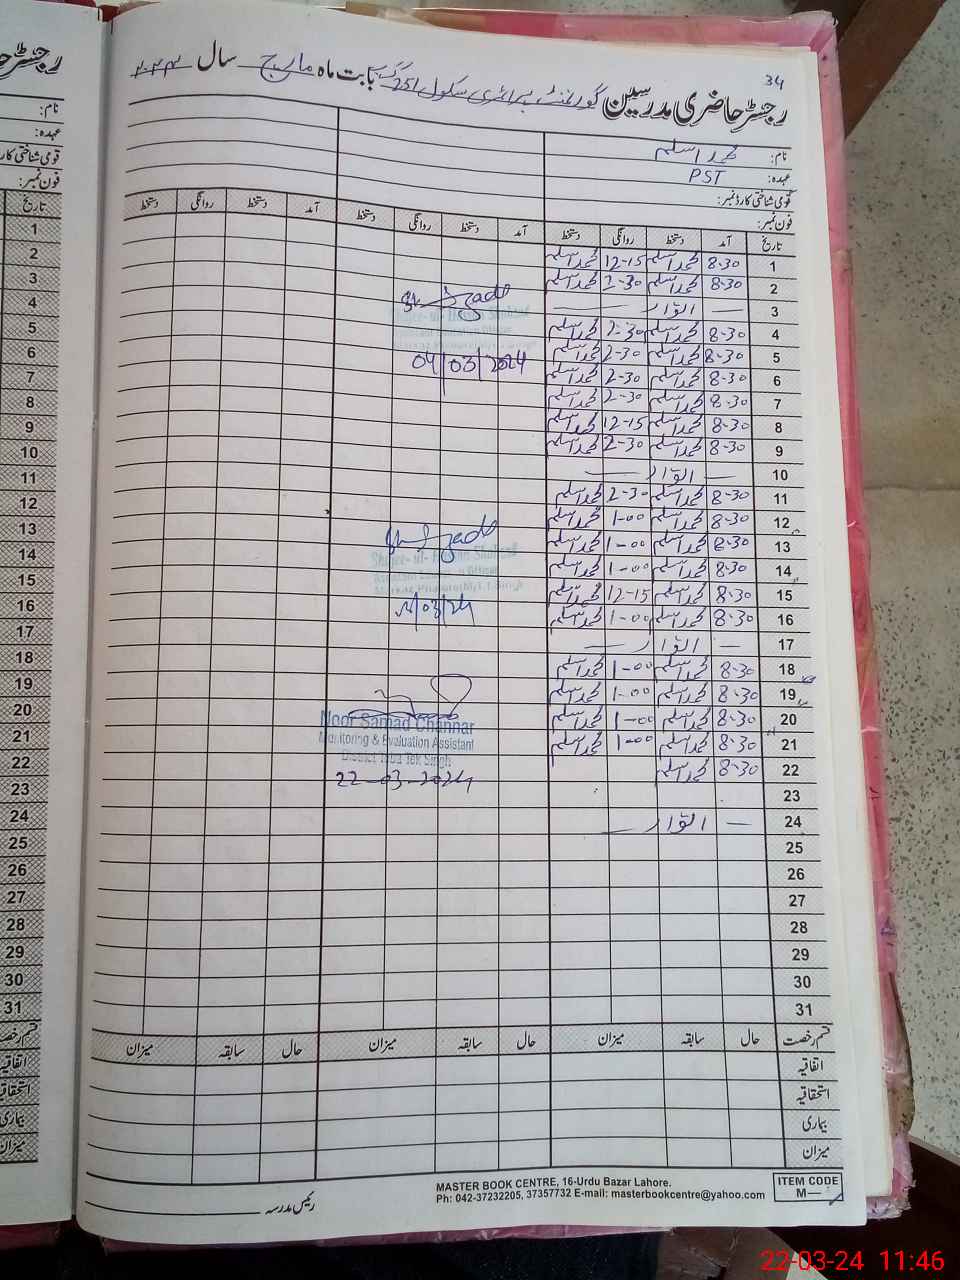 34
رجسٹر حاضری مدرسین گورنمنٹ پرائمری سکول 251 بابت ماہ مارچ سال ۲۰۲۴
نام: محمد اسلم
عہدہ: PST
قومی شناختی کارڈ نمبر:
فون نمبر:
تاریخ آمد دستخط روانگی دستخط آمد دستخط روانگی دستخط آمد دستخط روانگی دستخط
1 8-30 محمد اسلم 12-15 محمد اسلم
2 8-30 محمد اسلم 2-30 محمد اسلم
3 — اتوار —
4 8-30 محمد اسلم 2-30 محمد اسلم
5 8-30 محمد اسلم 2-30 محمد اسلم
6 8-30 محمد اسلم 2-30 محمد اسلم
7 8-30 محمد اسلم 2-30 محمد اسلم
8 8-30 محمد اسلم 12-15 محمد اسلم
9 8-30 محمد اسلم 2-30 محمد اسلم
10 — اتوار —
11 8-30 محمد اسلم 2-30 محمد اسلم
12 8-30 محمد اسلم 1-00 محمد اسلم
13 8-30 محمد اسلم 1-00 محمد اسلم
14 8-30 محمد اسلم 1-00 محمد اسلم
15 8-30 محمد اسلم 12-15 محمد اسلم
16 8-30 محمد اسلم 1-00 محمد اسلم
17 — اتوار —
18 8-30 محمد اسلم 1-00 محمد اسلم
19 8-30 محمد اسلم 1-00 محمد اسلم
20 8-30 محمد اسلم 1-00 محمد اسلم
21 8-30 محمد اسلم 1-00 محمد اسلم
22 8-30 محمد اسلم
23
24 — اتوار —
25
26
27
28
29
30
31
04/03/2024
Noor Samad Channar
Monitoring & Evaluation Assistant
District Toba Tek Singh
22-03-2024
قسم رخصت حال سابقہ میزان حال سابقہ میزان حال سابقہ میزان
اتفاقیہ
استحقاقیہ
بیماری
میزان
رئیس مدرسہ
MASTER BOOK CENTRE, 16-Urdu Bazar Lahore.
Ph: 042-37232205, 37357732 E-mail: masterbookcentre@yahoo.com
ITEM CODE
M—
نام:
عہدہ:
قومی شناختی کارڈ
فون نمبر:
تاریخ
1
2
3
4
5
6
7
8
9
10
11
12
13
14
15
16
17
18
19
20
21
22
23
24
25
26
27
28
29
30
31
22-03-24 11:46